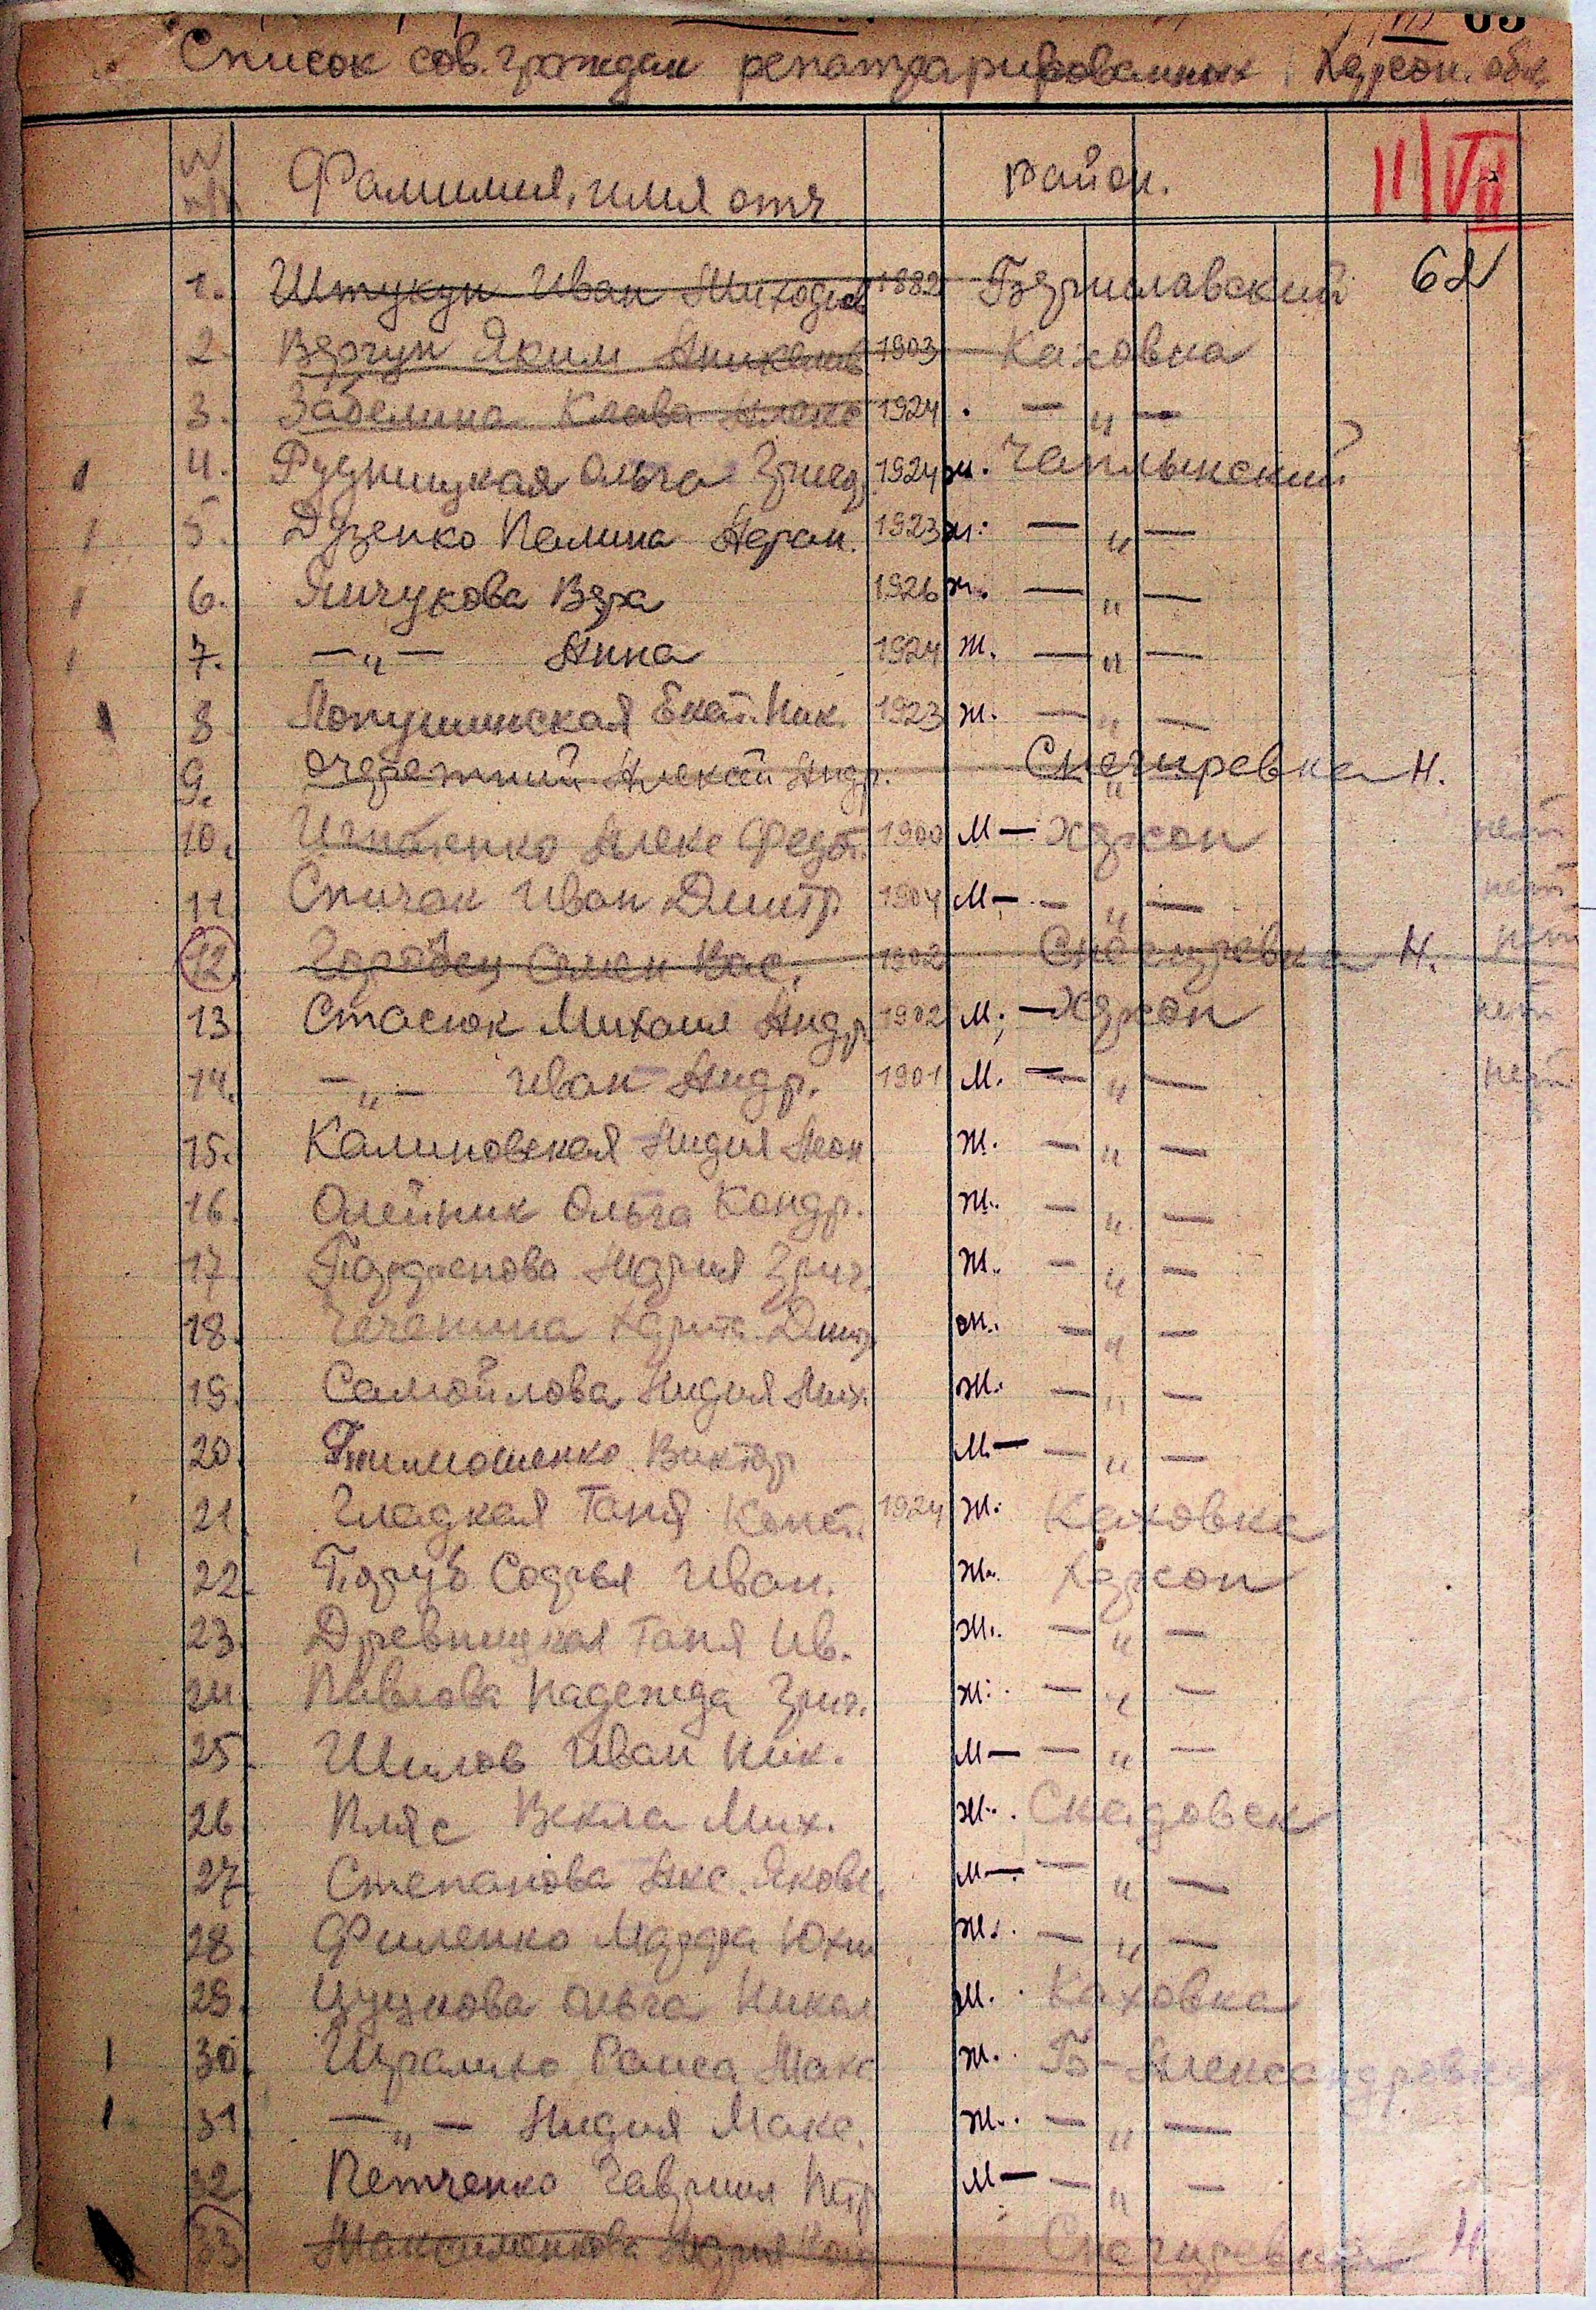 Список сов. граждан репатриированных Херсон. обл.
№ Фамилия, имя отч район. III/VII
1. Штукун Иван 1882 Бериславский 62
2. Вергун Яким 1903 Каховка
3. Забелина Клава 1924 . — „ —
1 4. Рудницкая Ольга 1924 ж. Чаплынский
1 5. Дузенко Полина 1923 ж. — „ —
1 6. Вера 1926 ж. — „ —
1 7. — „ — Анна 1924 ж. — „ —
1 8 Лопушинская Екат. Ник. 1923 ж. — „ —
9. Очеретний Алексей Андр. Снегиревка Н.
10. Игнатенко Алекс Федот. 1900 М — Херсон нет
11 Спичак Иван Дмитр 1904 М — — „ — нет
12. Вас. 1902 Снегиревка Н. нет
13 Стасюк Михаил Андр 1902 М. — Херсон нет
14. — „ — Иван Андр. 1901 М. — — „ — нет
15. Калиновская Лидия Леон ж. — „ —
16. Олейник Ольга Кондр. ж. — „ —
17. Мария Григ. ж. — „ —
18. Чеченина Харит. Дмитр ж. — „ —
19. Самойлова Лидия ж. — „ —
20. Тимошенко Виктор М — — „ —
21. Гладкая Таня Конст. 1924 ж. Каховка
22. Иван. ж. Херсон
23. Древницкая Таня Ив. ж. — „ —
24. Павлова Надежда Григ. ж. — „ —
25. Шилов Иван Ник. М — — „ —
26 Пляс Векла Мих. ж. Скадовск
27. Степанова Акс. Яковл. М — — „ —
28 Филенко Марфа Юхим ж. — „ —
29. Ольга Никол ж. Каховка
1 30. Раиса Макс ж. Б-Александровка
1 31 — „ — Лидия Макс. ж. — „ —
32 Петченко Гаврил Петр М — — „ —
33 Максименкова Мария Снегиревка Н